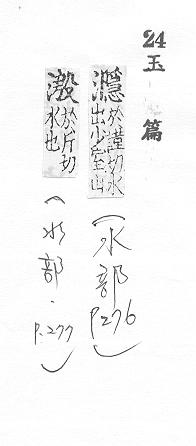 24 玉篇
濦 於謹切水出少室山
(水部 P.276)
溵 於斤切水也
(水部.P.277)